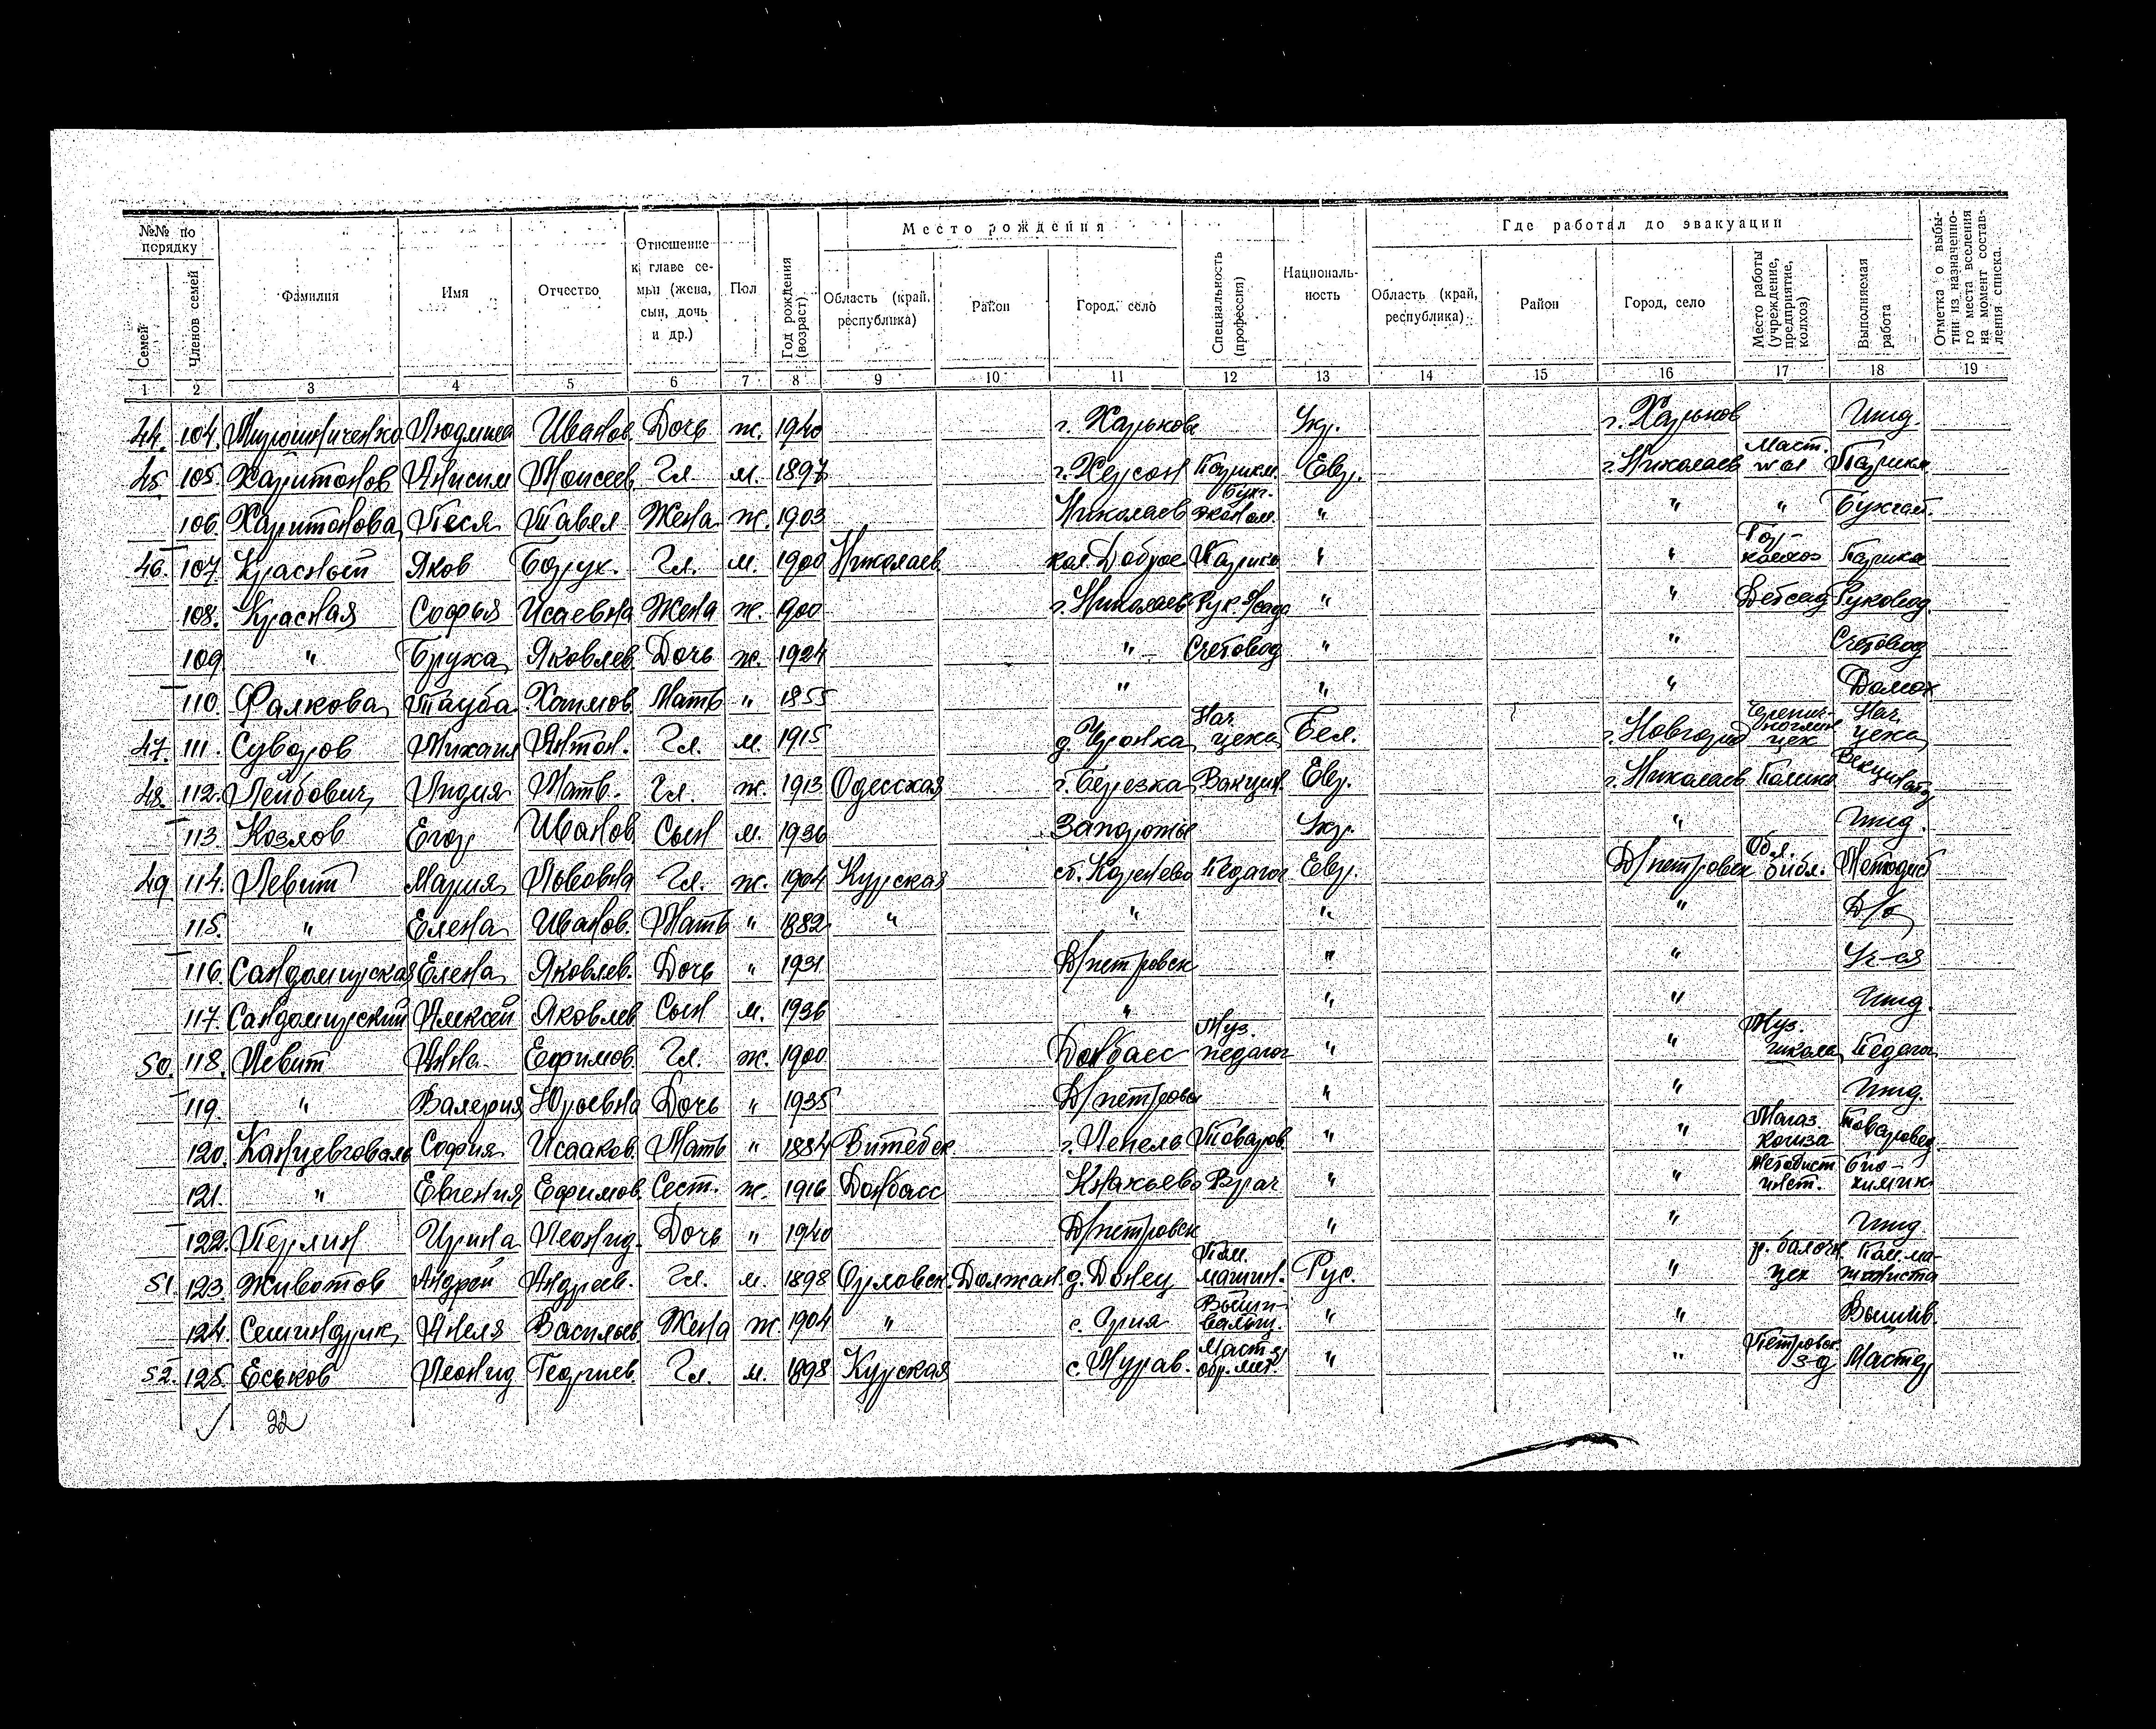 №№ по порядку
Семей
Членов семей
Фамилия
Имя
Отчество
Отношение к главе семьи (жена, сын, дочь и др.)
Пол
Год рождения (возраст)
Место рождения
Область (край, республика)
Район
Город, село
Специальность (профессия)
Националь-ность
Где работал до эвакуации
Область (край, республика)
Район
Город, село
Место работы (учреждение, предприятие, колхоз)
Выполняемая работа
Отметка о выбы-тии из назначенно-го места вселения на момент состав-ления списка.
1 2 3 4 5 6 7 8 9 10 11 12 13 14 15 16 17 18 19
44. 104. Мирошниченко Людмила Иванов. Дочь ж. 1940 г. Харькове Укр. г. Харьков Ижд.
45. 105. Харитонов Анисим Моисеев. Гл. м. 1897 г. Херсон Парикм. Евр. г. Николаев Маст. Парикм.
106. Харитонова Песя Павел Жена ж. 1903 Николаев Бухг. эконом. " " " Бухгал.
46. 107. Красный Яков Борух. Гл. м. 1900 Николаев. кол. Доброе Парикм " " Парикм
108. Красная Софья Исаевна Жена ж. 1900 г. Николаев Рук. д/сада " " Детсад Руковод.
109 " Бруха Яковлев. Дочь ж. 1924 " Счетовод " " Счетовод
110. Фалкова Тауба Хаимов. Мать " 1855 " " " Домох
47. 111. Суворов Михаил Антон. Гл. м. 1915 Нач. цеха Бел. г. Новгород цех Нач. цеха
48. 112. Лейбович Лидия Матв. Гл. ж. 1913 Одесская г. Березка Вакцин. Евр. г. Николаев Полик. Вакцинатор
113. Козлов Егор Иванов Сын м. 1936 Запорожье Укр. " Ижд.
49 114. Левит Мария Львовна Гл. ж. 1904 Курская ст. Коренево Педагог Евр. Д/петровск Обл. библ. Методист
115. " Елена Иванов. Мать " 1882 " " " " Д/х
116. Сандомирская Елена Яковлев. Дочь " 1931 Д/петровск " " Уч-ся
117. Сандомирский Алексей Яковлев Сын м. 1936 " " " Ижд.
50. 118. Левит Анна Ефимов. Гл. ж. 1900 Донбасс Муз. педагог " " Муз. школа Педагог
119. " Валерия Юрьевна Дочь " 1935 Д/петровск " " Ижд.
120. София Исааков. Мать " 1884 Витебск. г. Лепель Товаров. " " Магаз. Когиза Товаровед.
121. " Евгения Ефимов. Сест. ж. 1916 Донбасс Врач " " инст. био-химик
122. Перлин Ирина Леонид. Дочь " 1940 Д/петровск " " Ижд.
51. 123. Животов Андрей Андреев. Гл. м. 1898 Орловск. Должан. д. Донец Пом. машин. Рус. " р. балочн. цех Пом. ма-шиниста
124. Семиндрик Анеля Васильев Жена ж. 1904 " Вышивальщ. " " Вышив.
52. 125. Еськов Леонид Георгиев. Гл. м. 1898 Курская с. Мурав. Маст. обр. мет. " " Петровск. з-д Мастер
22